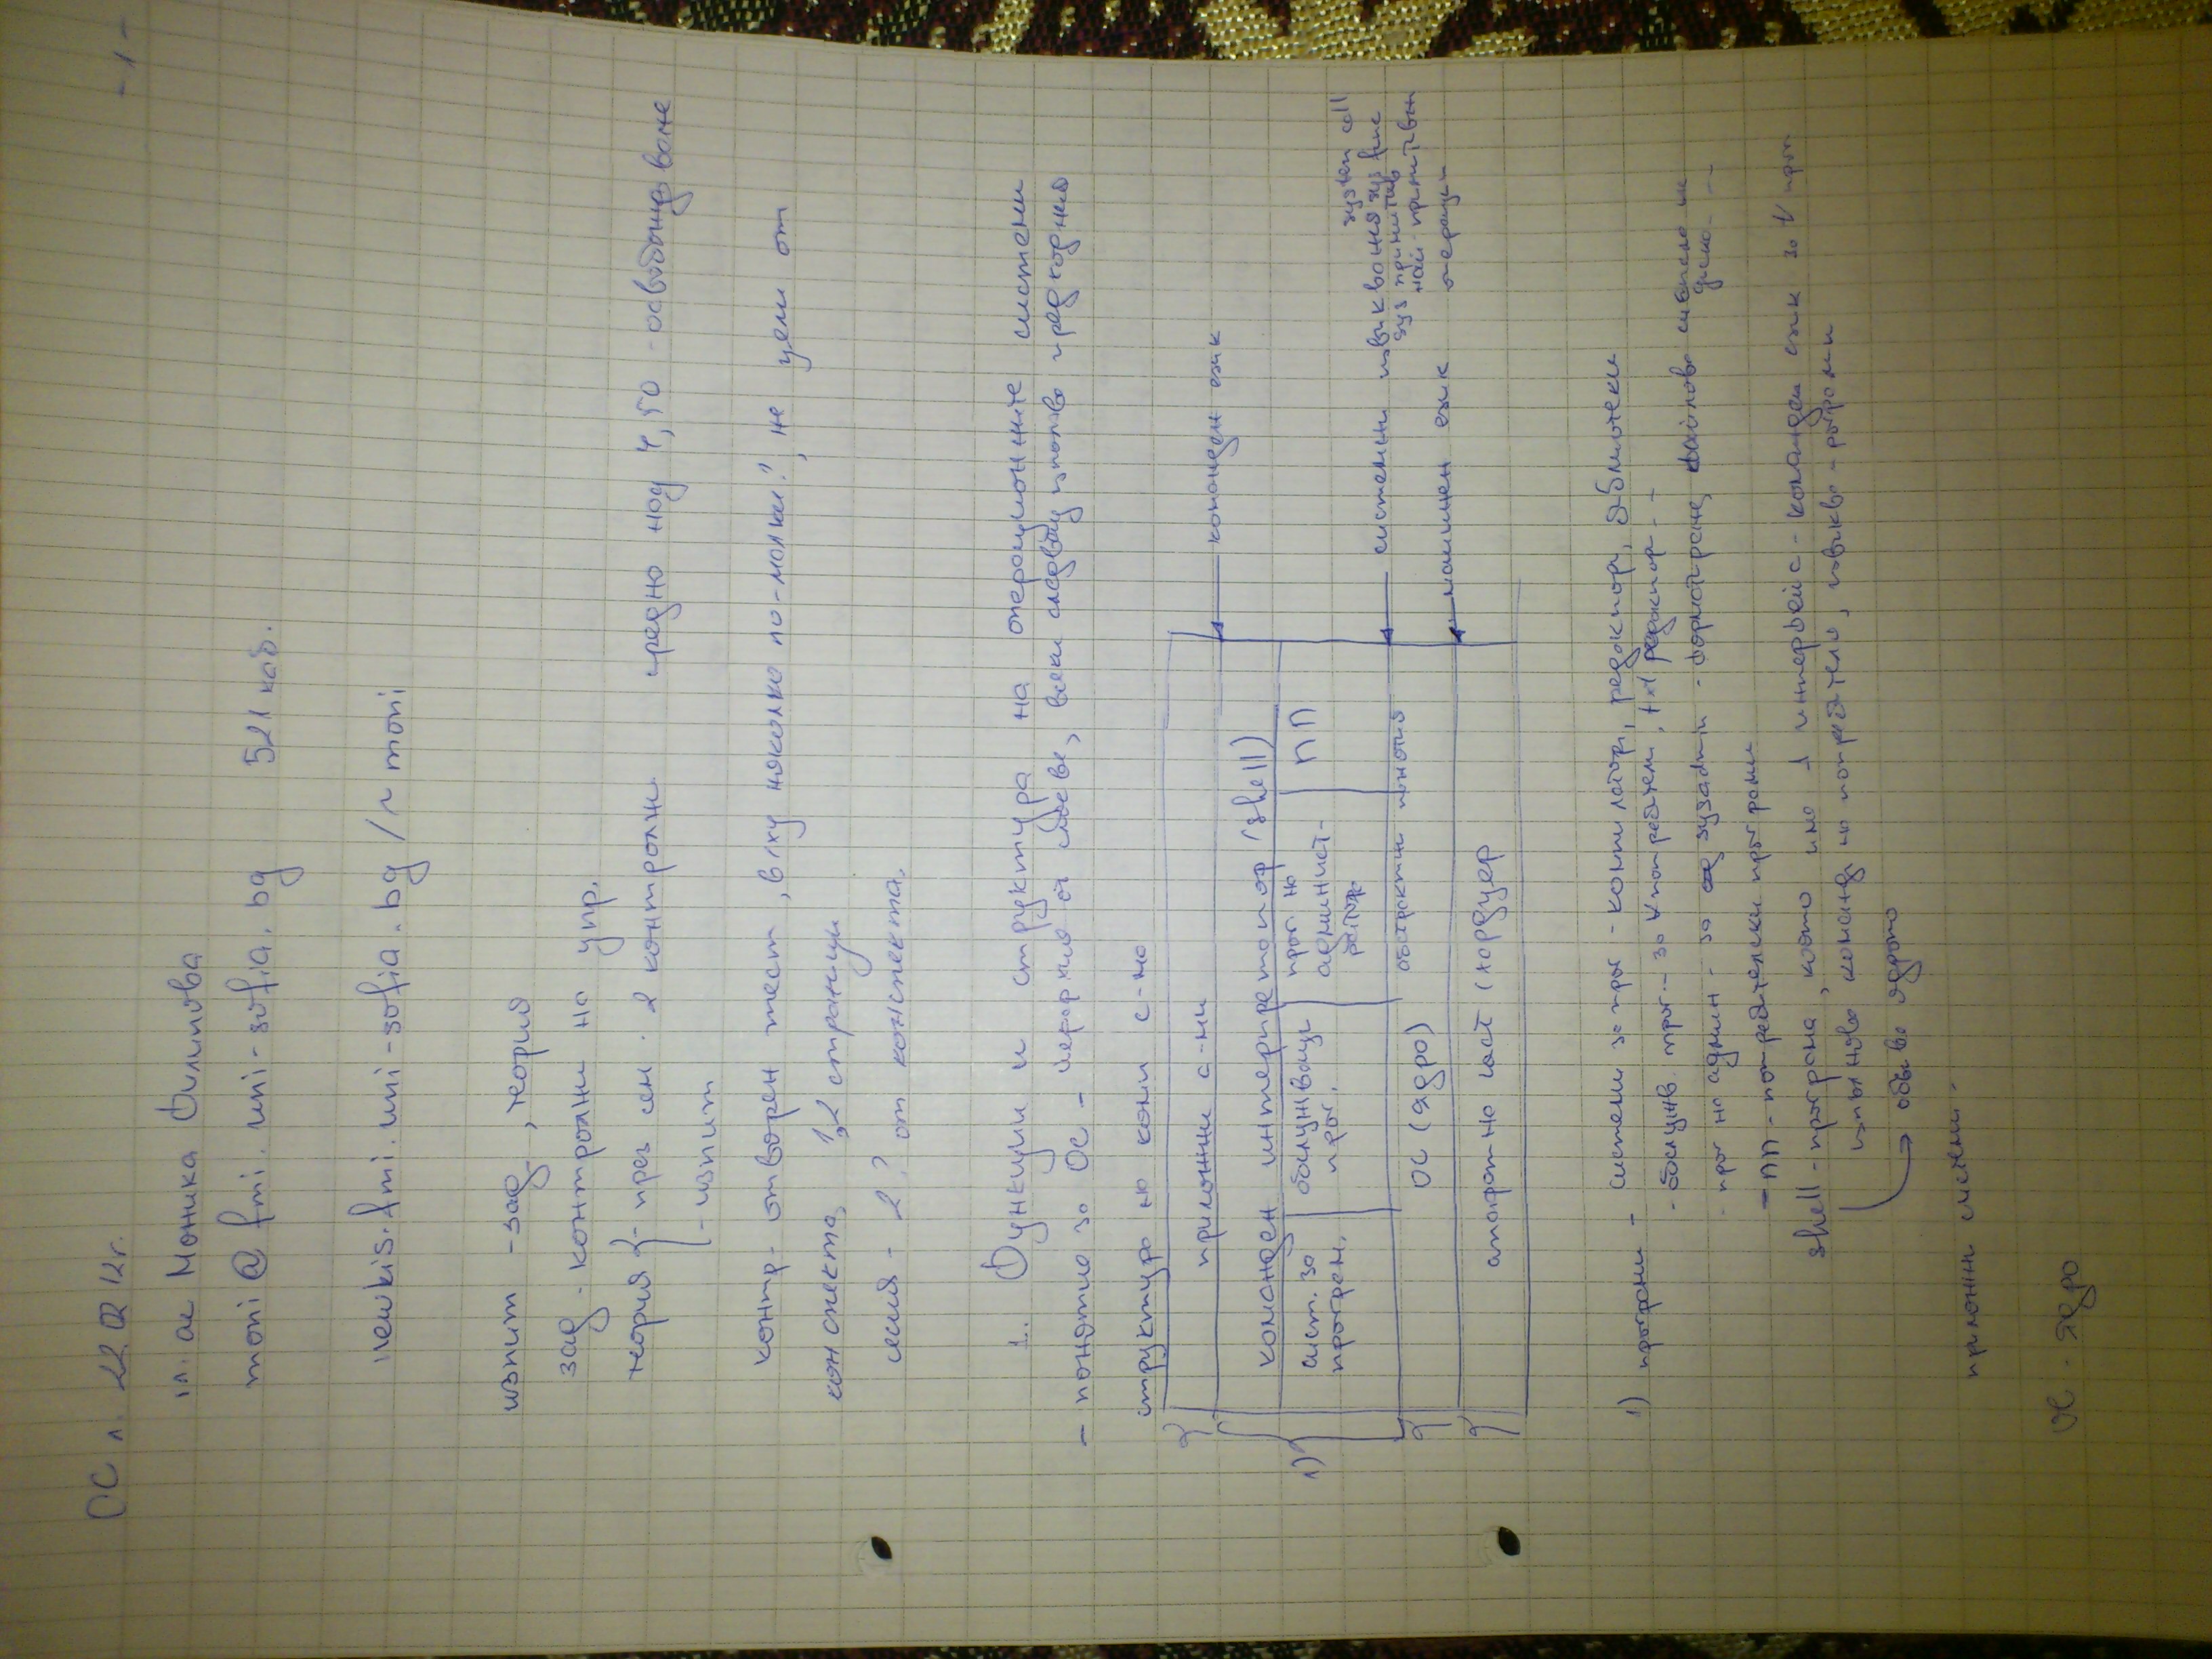 ОС л. 22.02.12г. - 1 -
гл. ас Моника Филипова
moni @ fmi. uni-sofia. bg 521 каб.
newkis.fmi.uni-sofia.bg/~moni
изпит - зад, теория
зад. контролни на упр.
теория { - през сем. 2 контролни средно над 4,50 - освобождаване
- изпит
контр - отворен тест, върху няколко по-малки?, не цели от
конспекта, 1,2 страници
сесия - 2? от конспекта.
1. Функции и структура на операционните системи
- понятие за ОС - йерархия от слоеве, всеки следващ използва предходния
структура на комп с-ма
2) приложни с-ми
командвен език
1) команден интерпретатор (shell)
сист. за програм. обслужващи прог. прог на админист-ратора ПП
system call
системни извиквания
най примитивни операции
абстрактни понятия
2) ОС (ядро)
машинен език
2) апаратна част (хардуер)
1) програми - системи за прог - компилатори, редактори, библиотеки
- обслужв. прог - за потребител, txt редактор - -
- прог на админ - за sysadmin - форматиране, файлова система на диска - -
- ПП - потребителски програми
shell - програма, която има 1 интерфейс - команден език за
изпълнява команди на потребителя, извиква програми
обвива ядрото
приложни системи -
ОС - ядро